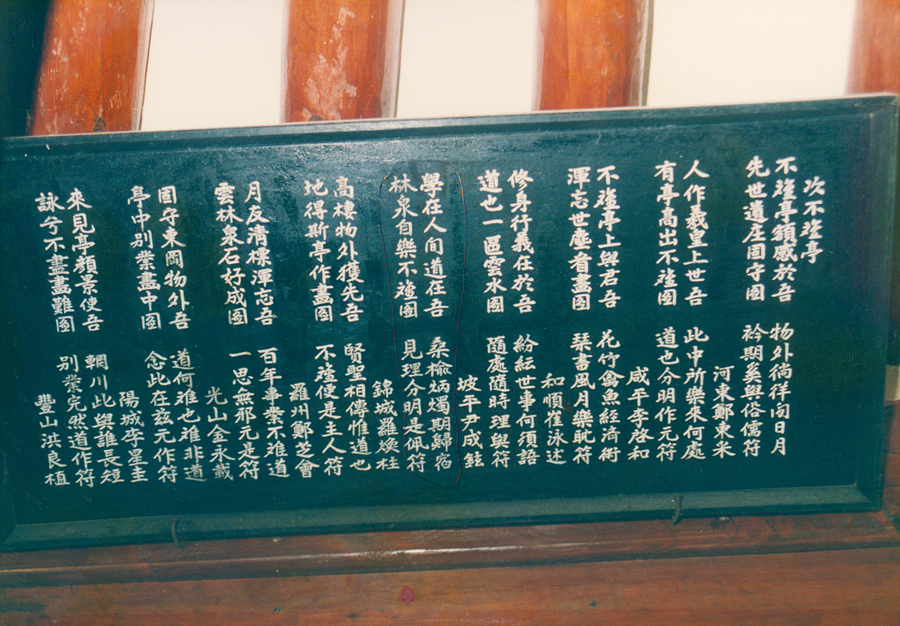 次不亭
不亭額感於吾 物外徜徉向日月
先世遺庄固守図 衿期奚與俗儒符
河東鄭東未
人作羲皇上世吾 此中所樂來何處
有亭高出不図 道也分明作元符
咸平李啓和
不亭上與君吾 花竹禽魚經濟術
渾忘世塵看畫図 琴書風月樂耽符
和順崔泳述
修身行義在於吾 紛紜世事何須語
道也一區雲水図 隨處隨時理與符
坡平尹成鉉
學在人間道在吾 桑榆炳燭期歸宿
林泉自樂不図 見理分明是佩符
錦城羅煥柱
高樓物外獲先吾 賢聖相傳惟道也
地得斯亭作畫図 不便是主人符
羅州鄭芝會
月友清標渾忘吾 百年事業不離道
雲林泉石好成図 一思無邪元是符
光山金永載
固守東岡物外吾 道何難也難非道
亭中別業畫中図 念此在茲元作符
陽城李星圭
來見亭顏景使吾 輞川此與誰長短
詠兮不盡畫難図 別業完然道作符
豐山洪良植